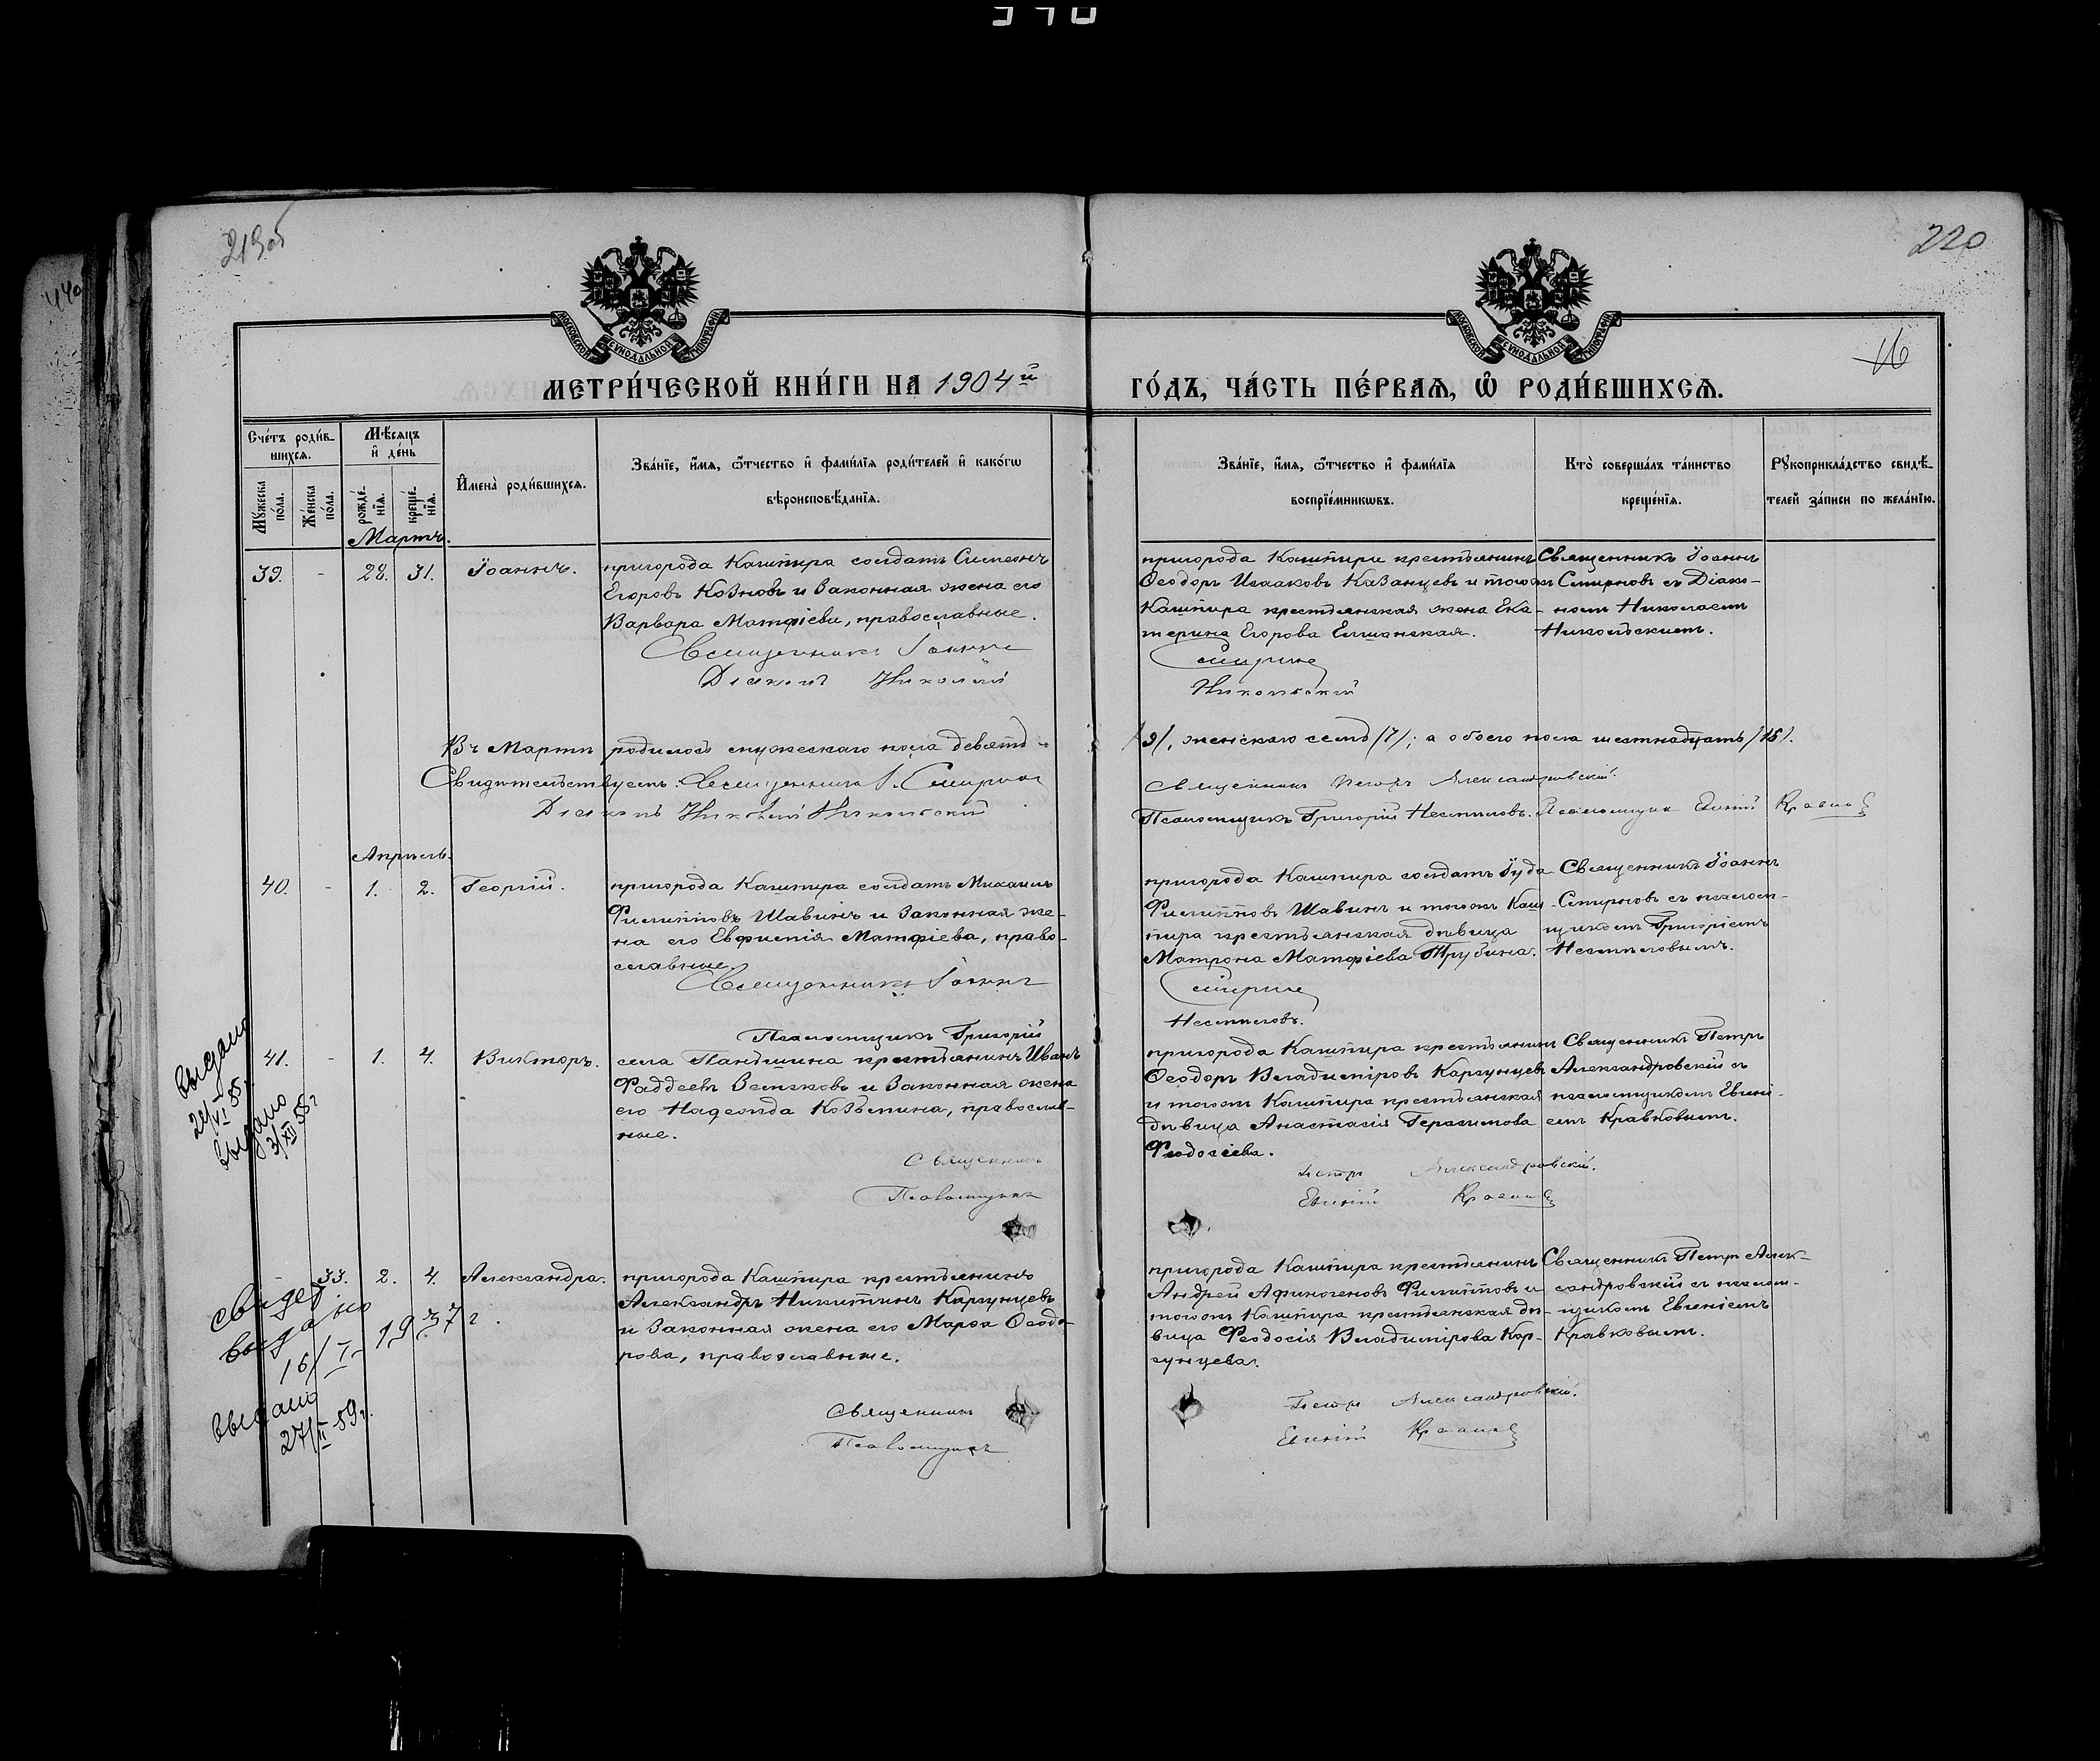 219об
220
440
16
МОСКОВСКОЙ СѴНОДАЛЬНОЙ ТИПОГРАФІИ
МОСКОВСКОЙ СѴНОДАЛЬНОЙ ТИПОГРАФІИ
МЕТРИ́ЧЕСКОЙ КНИ́ГИ НА 1904й
ГО́ДЪ, ЧА́СТЬ ПЕ́РВАѦ, Ѡ҆ РОДИ́ВШИХСѦ.
Сче́тъ роди́в-
шихсѧ.
Мѣ́сѧцъ
и҆ де́нь
Мꙋ́жеска по́ла.
Же́нска по́ла.
рожде́-нїѧ.
креще́-нїѧ.
И҆мена̀ роди́вшихсѧ.
Зва́нїе, и҆́мѧ, ѻ҆́тчество и҆ фами́лїѧ роди́телей и҆ како́гѡ
вѣроисповѣ́данїѧ.
Зва́нїе, и҆́мѧ, ѻ҆́тчество и҆ фами́лїѧ
воспрїе́мникѡвъ.
Кто̀ соверша́лъ та́инство
креще́нїѧ.
Рꙋкоприкла́дство свидѣ́-
телей за́писи по жела́нїю.
Мартъ.
39. - 28. 31. Іоаннъ.
пригорода Кашпира солдатъ Симеонъ
Егоровъ Козновъ и законная жена его
Варвара Матфіева, православные.
Священникъ Іоаннъ
Діаконъ Николай
пригорода Кашпира крестьянинъ
Ѳеодоръ Исааковъ Казанцевъ и тогож
Кашпира крестьянская жена Ека-
терина Егорова Елшанская.
Смирнов
Никольскій
Священникъ Іоаннъ
Смирновъ съ Діако-
номъ Николаемъ
Никольскимъ.
Въ Мартѣ родилось мужескаго пола девять
/9/, женскаго семь /7/; а обоего пола шестнадцать /16/.
Свидѣтельствуемъ: Священникъ І. Смирнов
Священникъ Петръ Александровскій.
Діаконъ Николай Никольскій
Псаломщикъ Григорій Несмѣловъ. Псаломщик Евгеній Кравков
Апрѣль.
40. - 1. 2. Георгій.
пригорода Кашпира солдатъ Михаилъ
Филипповъ Шавинъ и законная же-
на его Евфимія Матфіева, право-
славные.
Священникъ Іоаннъ
Псаломщикъ Григорій
пригорода Кашпира солдатъ Іуда
Филипповъ Шавинъ и тогож Каш-
пира крестьянская дѣвица
Матрона Матфіева Трубина.
Смирнов
Несмѣловъ.
Священникъ Іоаннъ
Смирновъ съ псалом-
щикомъ Григоріемъ
Несмѣловымъ.
выдано
21/VI 55 г
выдано
3/XII 58 г
41. - 1. 4. Викторъ.
села Паньшина крестьянинъ Иванъ
Фаддеевъ Земсковъ и законная жена
его Надежда Козьмина, православ-
ные.
Священникъ
Псаломщикъ
пригорода Кашпира крестьянинъ
Ѳеодоръ Владиміровъ Каргунцевъ
и тогож Кашпира крестьянская
дѣвица Анастасія Герасимова
Ѳеодосіева.
Петръ Александровскій.
Евгеній Кравков
Священникъ Петръ
Александровскій съ
псаломщикомъ Евгені-
емъ Кравковымъ.
- 33. 2. 4. Александра.
свидет
выдано
16/I-1937 г.
выдано
27/II-59 г.
пригорода Кашпира крестьянинъ
Александръ Никитинъ Каргунцевъ
и законная жена его Марѳа Ѳеодо-
рова, православные.
Священникъ
Псаломщикъ
пригорода Кашпира крестьянинъ
Андрей Афиногеновъ Филипповъ и
тогож Кашпира крестьянская дѣ-
вица Ѳеодосія Владимірова Кар-
гунцева.
Петръ Александровскій.
Евгеній Кравков
Священникъ Петръ Алек-
сандровскій съ псалом-
щикомъ Евгеніемъ
Кравковымъ.